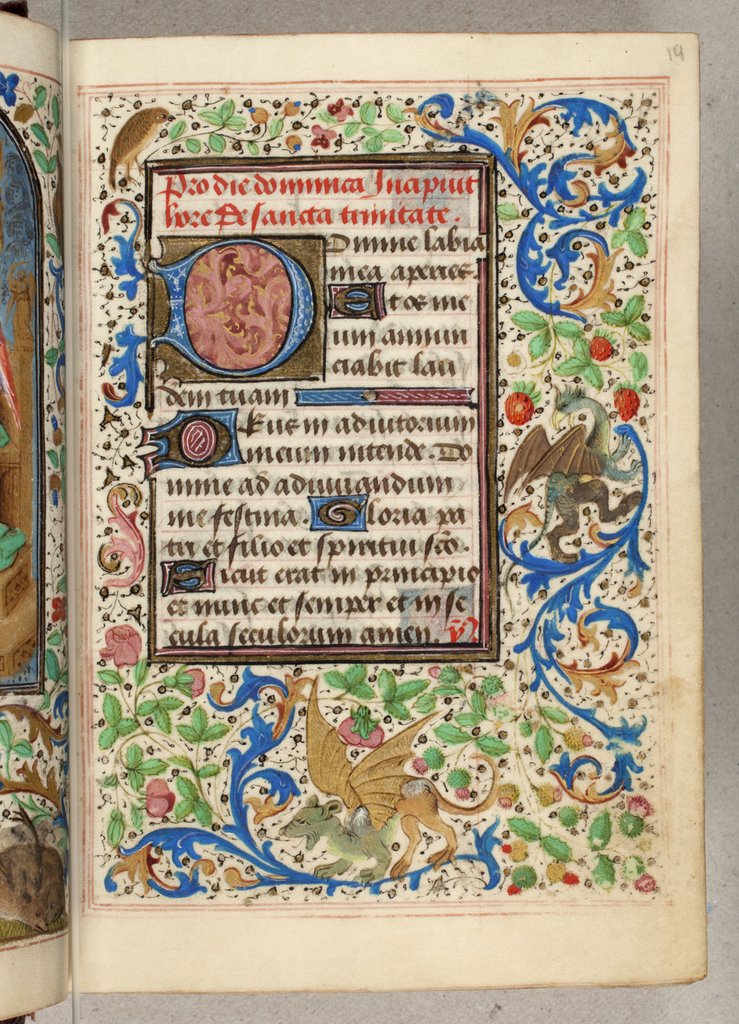 14
Pro die dominica Incipiut
hore de sancta trinitate.
Domine labia
mea aperies.
Et os me
um annun
ciabit lau
dem tuam
Deus in adiutorium
meum intende. Do
mine ad adiuvandum
me festina. Gloria pa
tri et filio et spiritui sco.
Sicut erat in principio
et nunc et semper et in se
cula seculorum amen. ym